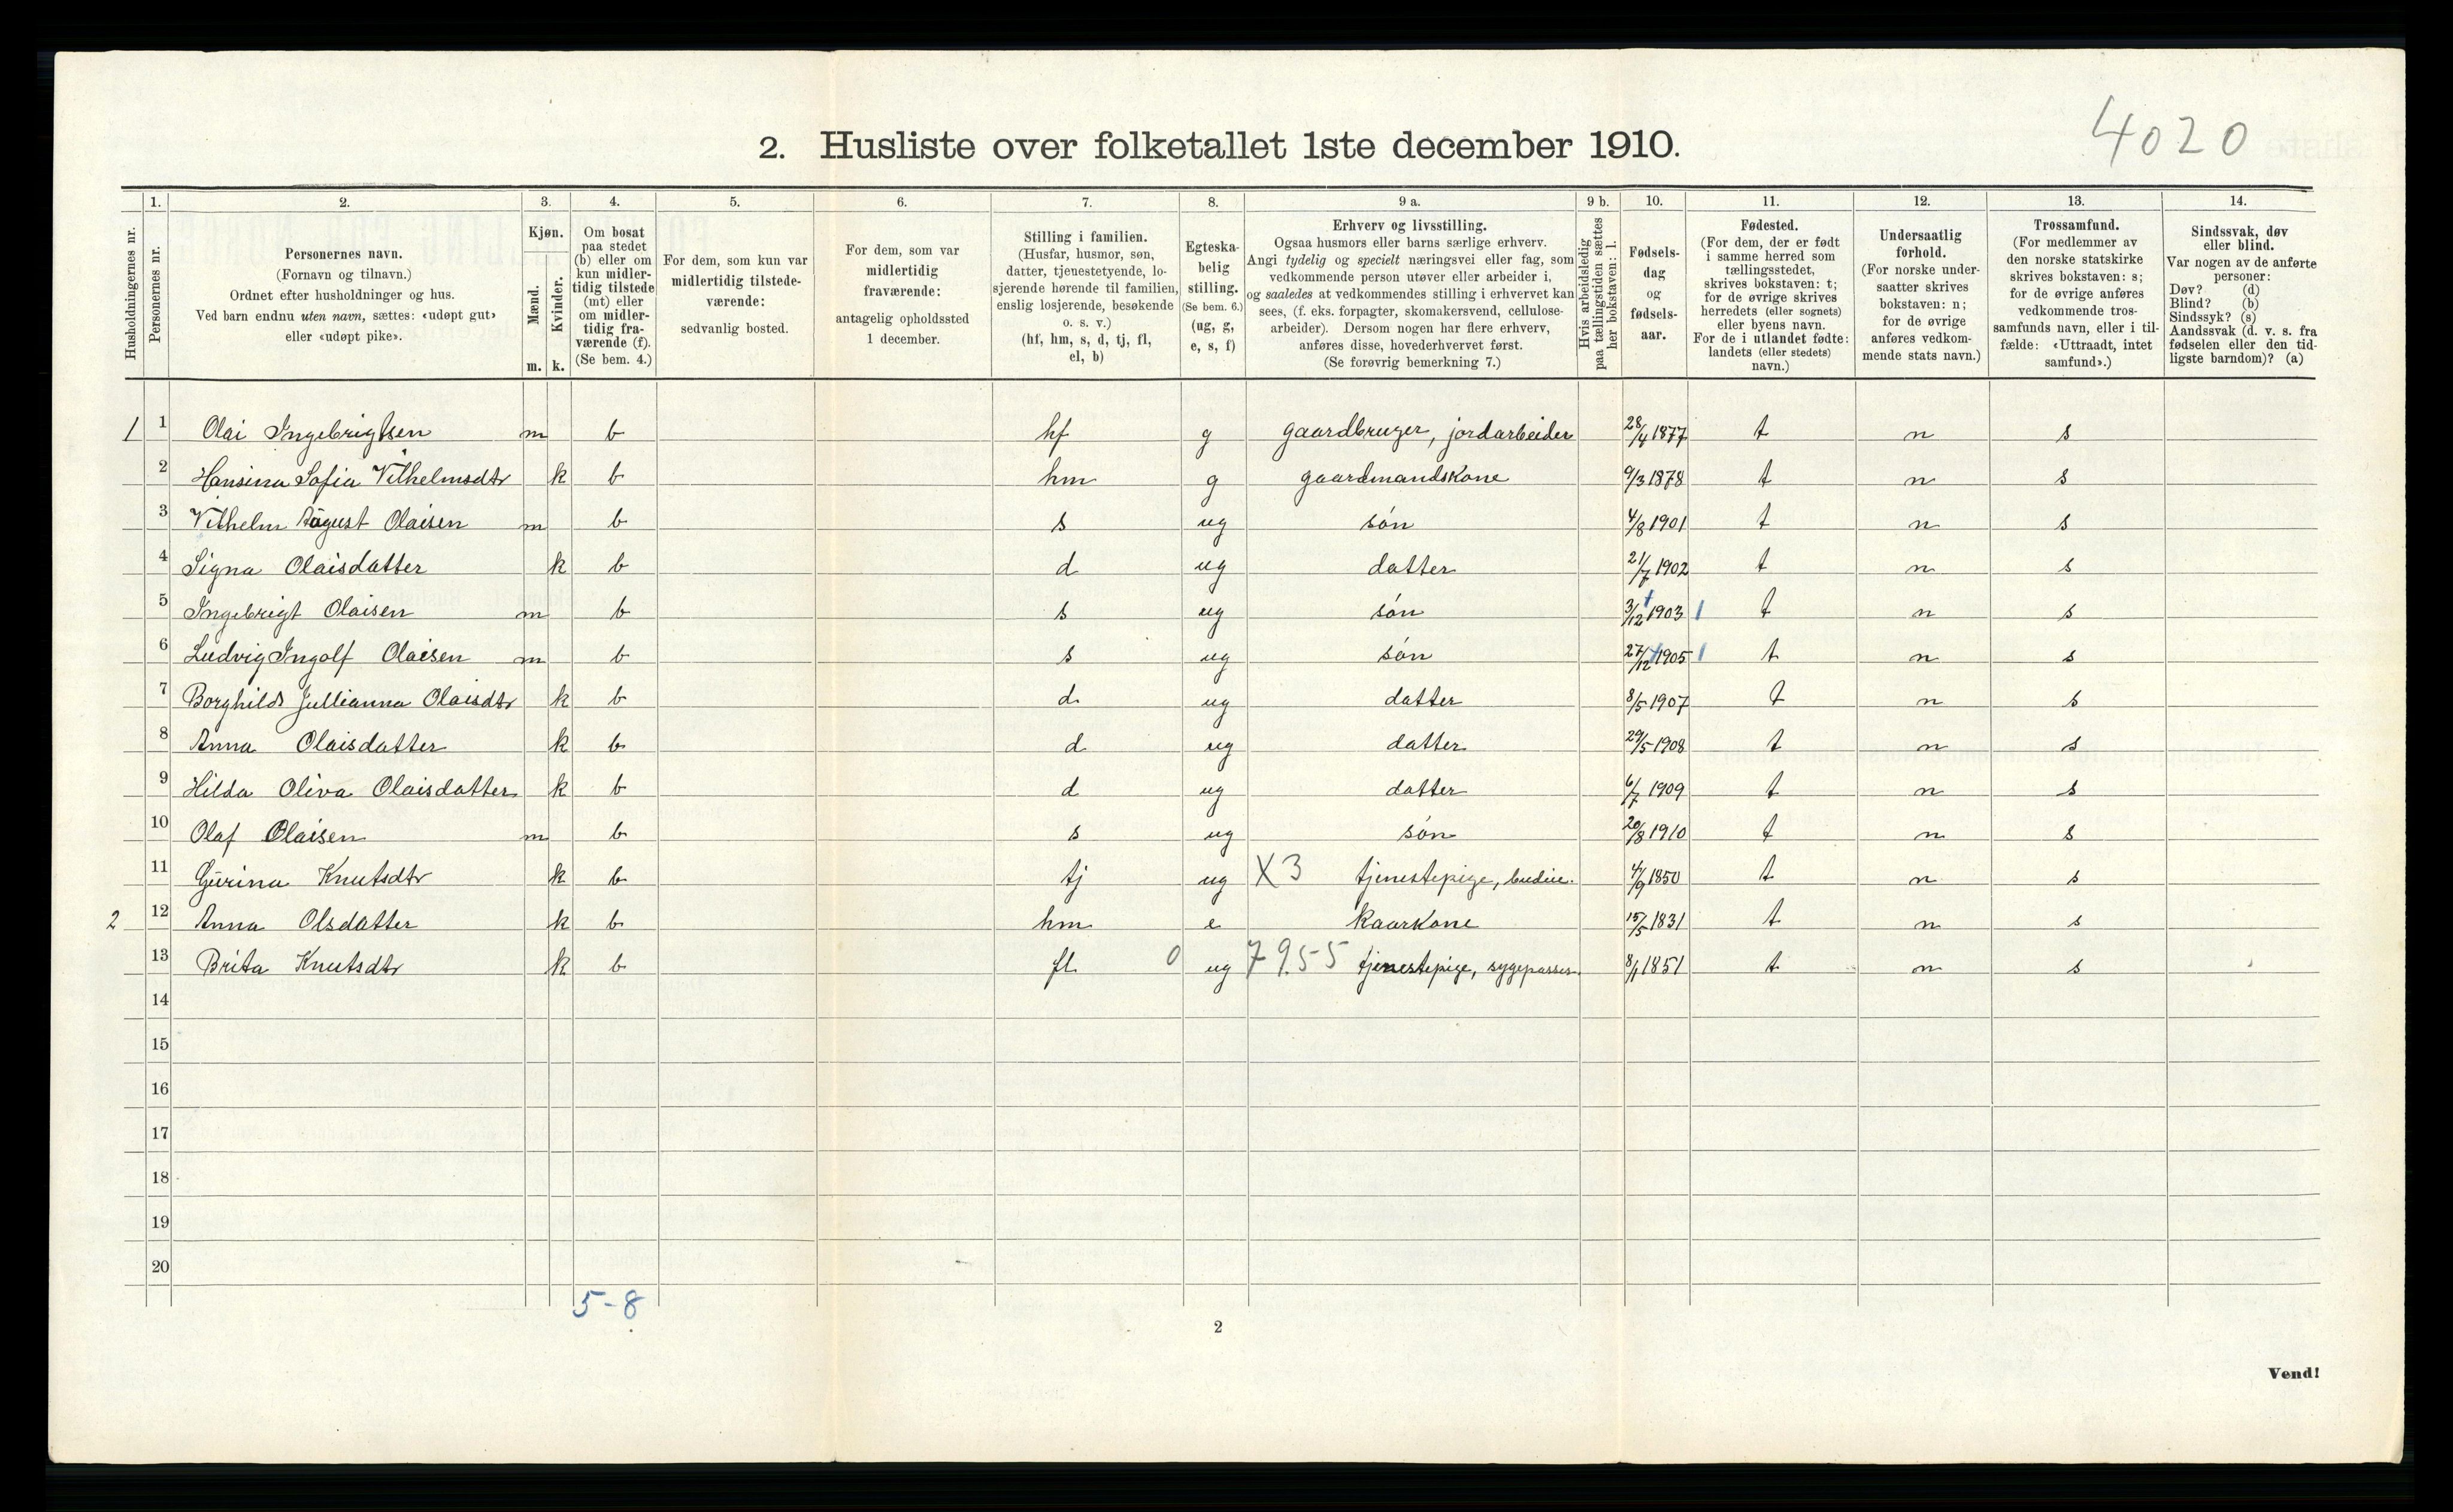 4020
2. Husliste over folketallet 1ste december 1910.
Husholdningernes nr.
1.
Personernes nr.
2.
Personernes navn.
(Fornavn og tilnavn.)
Ordnet efter husholdninger og hus.
Ved barn endnu uten navn, sættes: «udøpt gut»
eller «udøpt pike».
3.
Kjøn.
Mænd.
Kvinder.
m. k.
4.
Om bosat
paa stedet
(b) eller om
kun midler-
tidig tilstede
(mt) eller
om midler-
tidig fra-
værende (f).
(Se bem. 4.)
5.
For dem, som kun var
midlertidig tilstede-
værende:
sedvanlig bosted.
6.
For dem, som var
midlertidig
fraværende:
antagelig opholdssted
1 december.
7.
Stilling i familien.
(Husfar, husmor, søn,
datter, tjenestetyende, lo-
sjerende hørende til familien,
enslig losjerende, besøkende
o. s. v.)
(hf, hm, s, d, tj, fl,
el, b)
8.
Egteska-
belig
stilling.
(Se bem. 6.)
(ug, g,
e, s, f)
9 a.
Erhverv og livsstilling.
Ogsaa husmors eller barns særlige erhverv.
Angi tydelig og specielt næringsvei eller fag, som
vedkommende person utøver eller arbeider i,
og saaledes at vedkommendes stilling i erhvervet kan
sees, (f. eks. forpagter, skomakersvend, cellulose-
arbeider). Dersom nogen har flere erhverv,
anføres disse, hovederhvervet først.
(Se forøvrig bemerkning 7.)
9 b.
Hvis arbeidsledig
paa tællingstiden sættes
her bokstaven: l.
10.
Fødsels-
dag
og
fødsels-
aar.
11.
Fødested.
(For dem, der er født
i samme herred som
tællingsstedet,
skrives bokstaven: t;
for de øvrige skrives
herredets (eller sognets)
eller byens navn.
For de i utlandet fødte:
landets (eller stedets)
navn.)
12.
Undersaatlig
forhold.
(For norske under-
saatter skrives
bokstaven: n;
for de øvrige
anføres vedkom-
mende stats navn.)
13.
Trossamfund.
(For medlemmer av
den norske statskirke
skrives bokstaven: s;
for de øvrige anføres
vedkommende tros-
samfunds navn, eller i til-
fælde: «Uttraadt, intet
samfund».)
14.
Sindssvak, døv
eller blind.
Var nogen av de anførte
personer:
Døv? (d)
Blind? (b)
Sindssyk? (s)
Aandssvak (d. v. s. fra
fødselen eller den tid-
ligste barndom)? (a)
1 1 Olai Ingebrigtsen m b hf g gaardbruger, jordarbeider 28/4 1877 t n s
2 Hansina Sofia Vilhelmsdtr k b hm g gaardmandskone 9/3 1878 t n s
3 Vilhelm August Olaisen m b s ug søn 4/8 1901 t n s
4 Signa Olaisdatter k b d ug datter 21/7 1902 t n s
5 Ingebrigt Olaisen m b s ug søn 3/12 1903 t n s
6 Ludvig Ingolf Olaisen m b s ug søn 27/12 1905 t n s
7 Borghild Jullianna Olaisdtr k b d ug datter 8/5 1907 t n s
8 Anna Olaisdatter k b d ug datter 29/5 1908 t n s
9 Hilda Oliva Olaisdatter k b d ug datter 6/7 1909 t n s
10 Olaf Olaisen m b s ug søn 20/8 1910 t n s
11 Gurina Knutsdtr k b tj ug X3 tjenestepige, budeie. 4/9 1850 t n s
2 12 Anna Olsdatter k b hm e Kaarkone 15/5 1831 t n s
13 Brita Knutsdtr k b fl 0 ug 7955 tjenestepige, sygepasser. 8/1 1851 t n s
14
15
16
17
18
19
20
5-8
2
Vend!